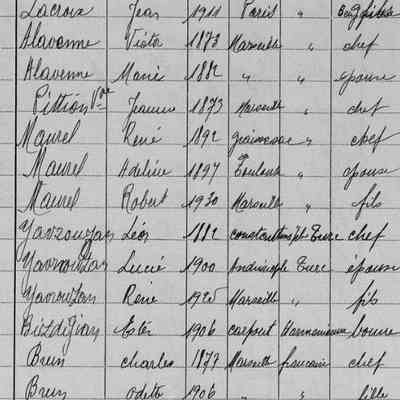 Lacroix Jean 1911 Paris "
Alavenne Victor 1873 Marseille " chef
Alavenne Marie 1882 " " épouse
Pittion Vve Jeanne 1873 Marseille " chef
Maurel René 1892 " chef
Maurel Adeline 1897 Toulouse " épouse
Maurel Robert 1930 Marseille " fils
Léon 1882 Turc chef
Lucie 1900 Andrinople Turc épouse
René 1925 Marseille " fils
Ester 1906 bonne
Brun Charles 1877 Marseille française chef
Brun Odette 1906 " " fille